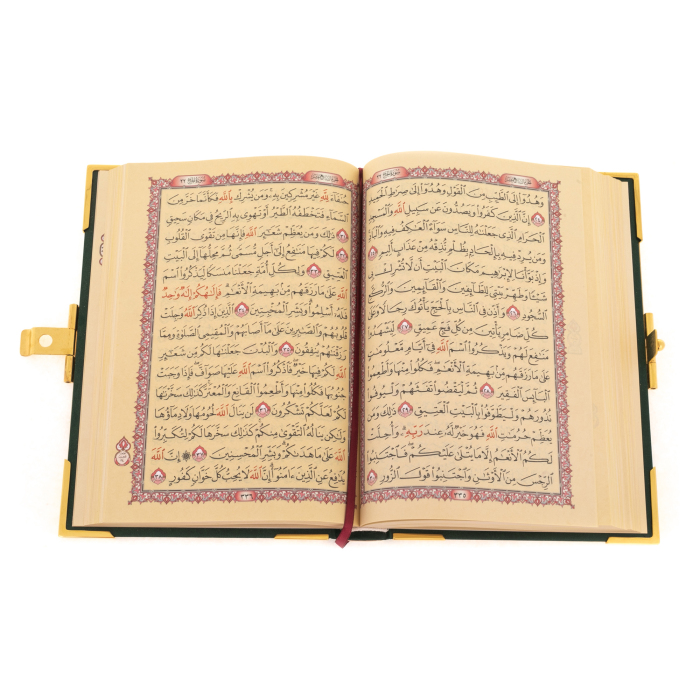 سورة الحج ٢٢
وَهُدُوٓا۟ إِلَى ٱلطَّيِّبِ مِنَ ٱلْقَوْلِ وَهُدُوٓا۟ إِلَىٰ صِرَٰطِ ٱلْحَمِيدِ
٢٤ إِنَّ ٱلَّذِينَ كَفَرُوا۟ وَيَصُدُّونَ عَن سَبِيلِ ٱللَّهِ وَٱلْمَسْجِدِ
ٱلْحَرَامِ ٱلَّذِى جَعَلْنَٰهُ لِلنَّاسِ سَوَآءً ٱلْعَٰكِفُ فِيهِ وَٱلْبَادِ
وَمَن يُرِدْ فِيهِ بِإِلْحَادٍۭ بِظُلْمٍ نُّذِقْهُ مِنْ عَذَابٍ أَلِيمٍ ٢٥
وَإِذْ بَوَّأْنَا لِإِبْرَٰهِيمَ مَكَانَ ٱلْبَيْتِ أَن لَّا تُشْرِكْ بِى
شَيْـًٔا وَطَهِّرْ بَيْتِىَ لِلطَّآئِفِينَ وَٱلْقَآئِمِينَ وَٱلرُّكَّعِ
ٱلسُّجُودِ ٢٦ وَأَذِّن فِى ٱلنَّاسِ بِٱلْحَجِّ يَأْتُوكَ رِجَالًا وَعَلَىٰ
كُلِّ ضَامِرٍ يَأْتِينَ مِن كُلِّ فَجٍّ عَمِيقٍ ٢٧ لِّيَشْهَدُوا۟
مَنَٰفِعَ لَهُمْ وَيَذْكُرُوا۟ ٱسْمَ ٱللَّهِ فِىٓ أَيَّامٍ مَّعْلُومَٰتٍ
عَلَىٰ مَا رَزَقَهُم مِّنۢ بَهِيمَةِ ٱلْأَنْعَٰمِ فَكُلُوا۟ مِنْهَا وَأَطْعِمُوا۟
ٱلْبَآئِسَ ٱلْفَقِيرَ ٢٨ ثُمَّ لْيَقْضُوا۟ تَفَثَهُمْ وَلْيُوفُوا۟
نُذُورَهُمْ وَلْيَطَّوَّفُوا۟ بِٱلْبَيْتِ ٱلْعَتِيقِ ٢٩ ذَٰلِكَ وَمَن
يُعَظِّمْ حُرُمَٰتِ ٱللَّهِ فَهُوَ خَيْرٌ لَّهُۥ عِندَ رَبِّهِۦ وَأُحِلَّتْ
لَكُمُ ٱلْأَنْعَٰمُ إِلَّا مَا يُتْلَىٰ عَلَيْكُمْ فَٱجْتَنِبُوا۟
ٱلرِّجْسَ مِنَ ٱلْأَوْثَٰنِ وَٱجْتَنِبُوا۟ قَوْلَ ٱلزُّورِ ٣٠
٣٣٥
سورة الحج ٢٢
حُنَفَآءَ لِلَّهِ غَيْرَ مُشْرِكِينَ بِهِۦ وَمَن يُشْرِكْ بِٱللَّهِ فَكَأَنَّمَا خَرَّ مِنَ
ٱلسَّمَآءِ فَتَخْطَفُهُ ٱلطَّيْرُ أَوْ تَهْوِى بِهِ ٱلرِّيحُ فِى مَكَانٍ سَحِيقٍ
٣١ ذَٰلِكَ وَمَن يُعَظِّمْ شَعَٰٓئِرَ ٱللَّهِ فَإِنَّهَا مِن تَقْوَى ٱلْقُلُوبِ
٣٢ لَكُمْ فِيهَا مَنَٰفِعُ إِلَىٰٓ أَجَلٍ مُّسَمًّى ثُمَّ مَحِلُّهَآ إِلَى ٱلْبَيْتِ
ٱلْعَتِيقِ ٣٣ وَلِكُلِّ أُمَّةٍ جَعَلْنَا مَنسَكًا لِّيَذْكُرُوا۟ ٱسْمَ
ٱللَّهِ عَلَىٰ مَا رَزَقَهُم مِّنۢ بَهِيمَةِ ٱلْأَنْعَٰمِ فَإِلَٰهُكُمْ إِلَٰهٌ وَٰحِدٌ
فَلَهُۥٓ أَسْلِمُوا۟ وَبَشِّرِ ٱلْمُخْبِتِينَ ٣٤ ٱلَّذِينَ إِذَا ذُكِرَ ٱللَّهُ وَجِلَتْ
قُلُوبُهُمْ وَٱلصَّٰبِرِينَ عَلَىٰ مَآ أَصَابَهُمْ وَٱلْمُقِيمِى ٱلصَّلَوٰةِ وَمِمَّا
رَزَقْنَٰهُمْ يُنفِقُونَ ٣٥ وَٱلْبُدْنَ جَعَلْنَٰهَا لَكُم مِّن شَعَٰٓئِرِ
ٱللَّهِ لَكُمْ فِيهَا خَيْرٌ فَٱذْكُرُوا۟ ٱسْمَ ٱللَّهِ عَلَيْهَا صَوَآفَّ فَإِذَا وَجَبَتْ
جُنُوبُهَا فَكُلُوا۟ مِنْهَا وَأَطْعِمُوا۟ ٱلْقَانِعَ وَٱلْمُعْتَرَّ كَذَٰلِكَ سَخَّرْنَٰهَا
لَكُمْ لَعَلَّكُمْ تَشْكُرُونَ ٣٦ لَن يَنَالَ ٱللَّهَ لُحُومُهَا وَلَا دِمَآؤُهَا
وَلَٰكِن يَنَالُهُ ٱلتَّقْوَىٰ مِنكُمْ كَذَٰلِكَ سَخَّرَهَا لَكُمْ لِتُكَبِّرُوا۟
ٱللَّهَ عَلَىٰ مَا هَدَىٰكُمْ وَبَشِّرِ ٱلْمُحْسِنِينَ ٣٧ ۞ إِنَّ ٱللَّهَ
يُدَٰفِعُ عَنِ ٱلَّذِينَ ءَامَنُوٓا۟ إِنَّ ٱللَّهَ لَا يُحِبُّ كُلَّ خَوَّانٍ كَفُورٍ ٣٨
٣٣٦